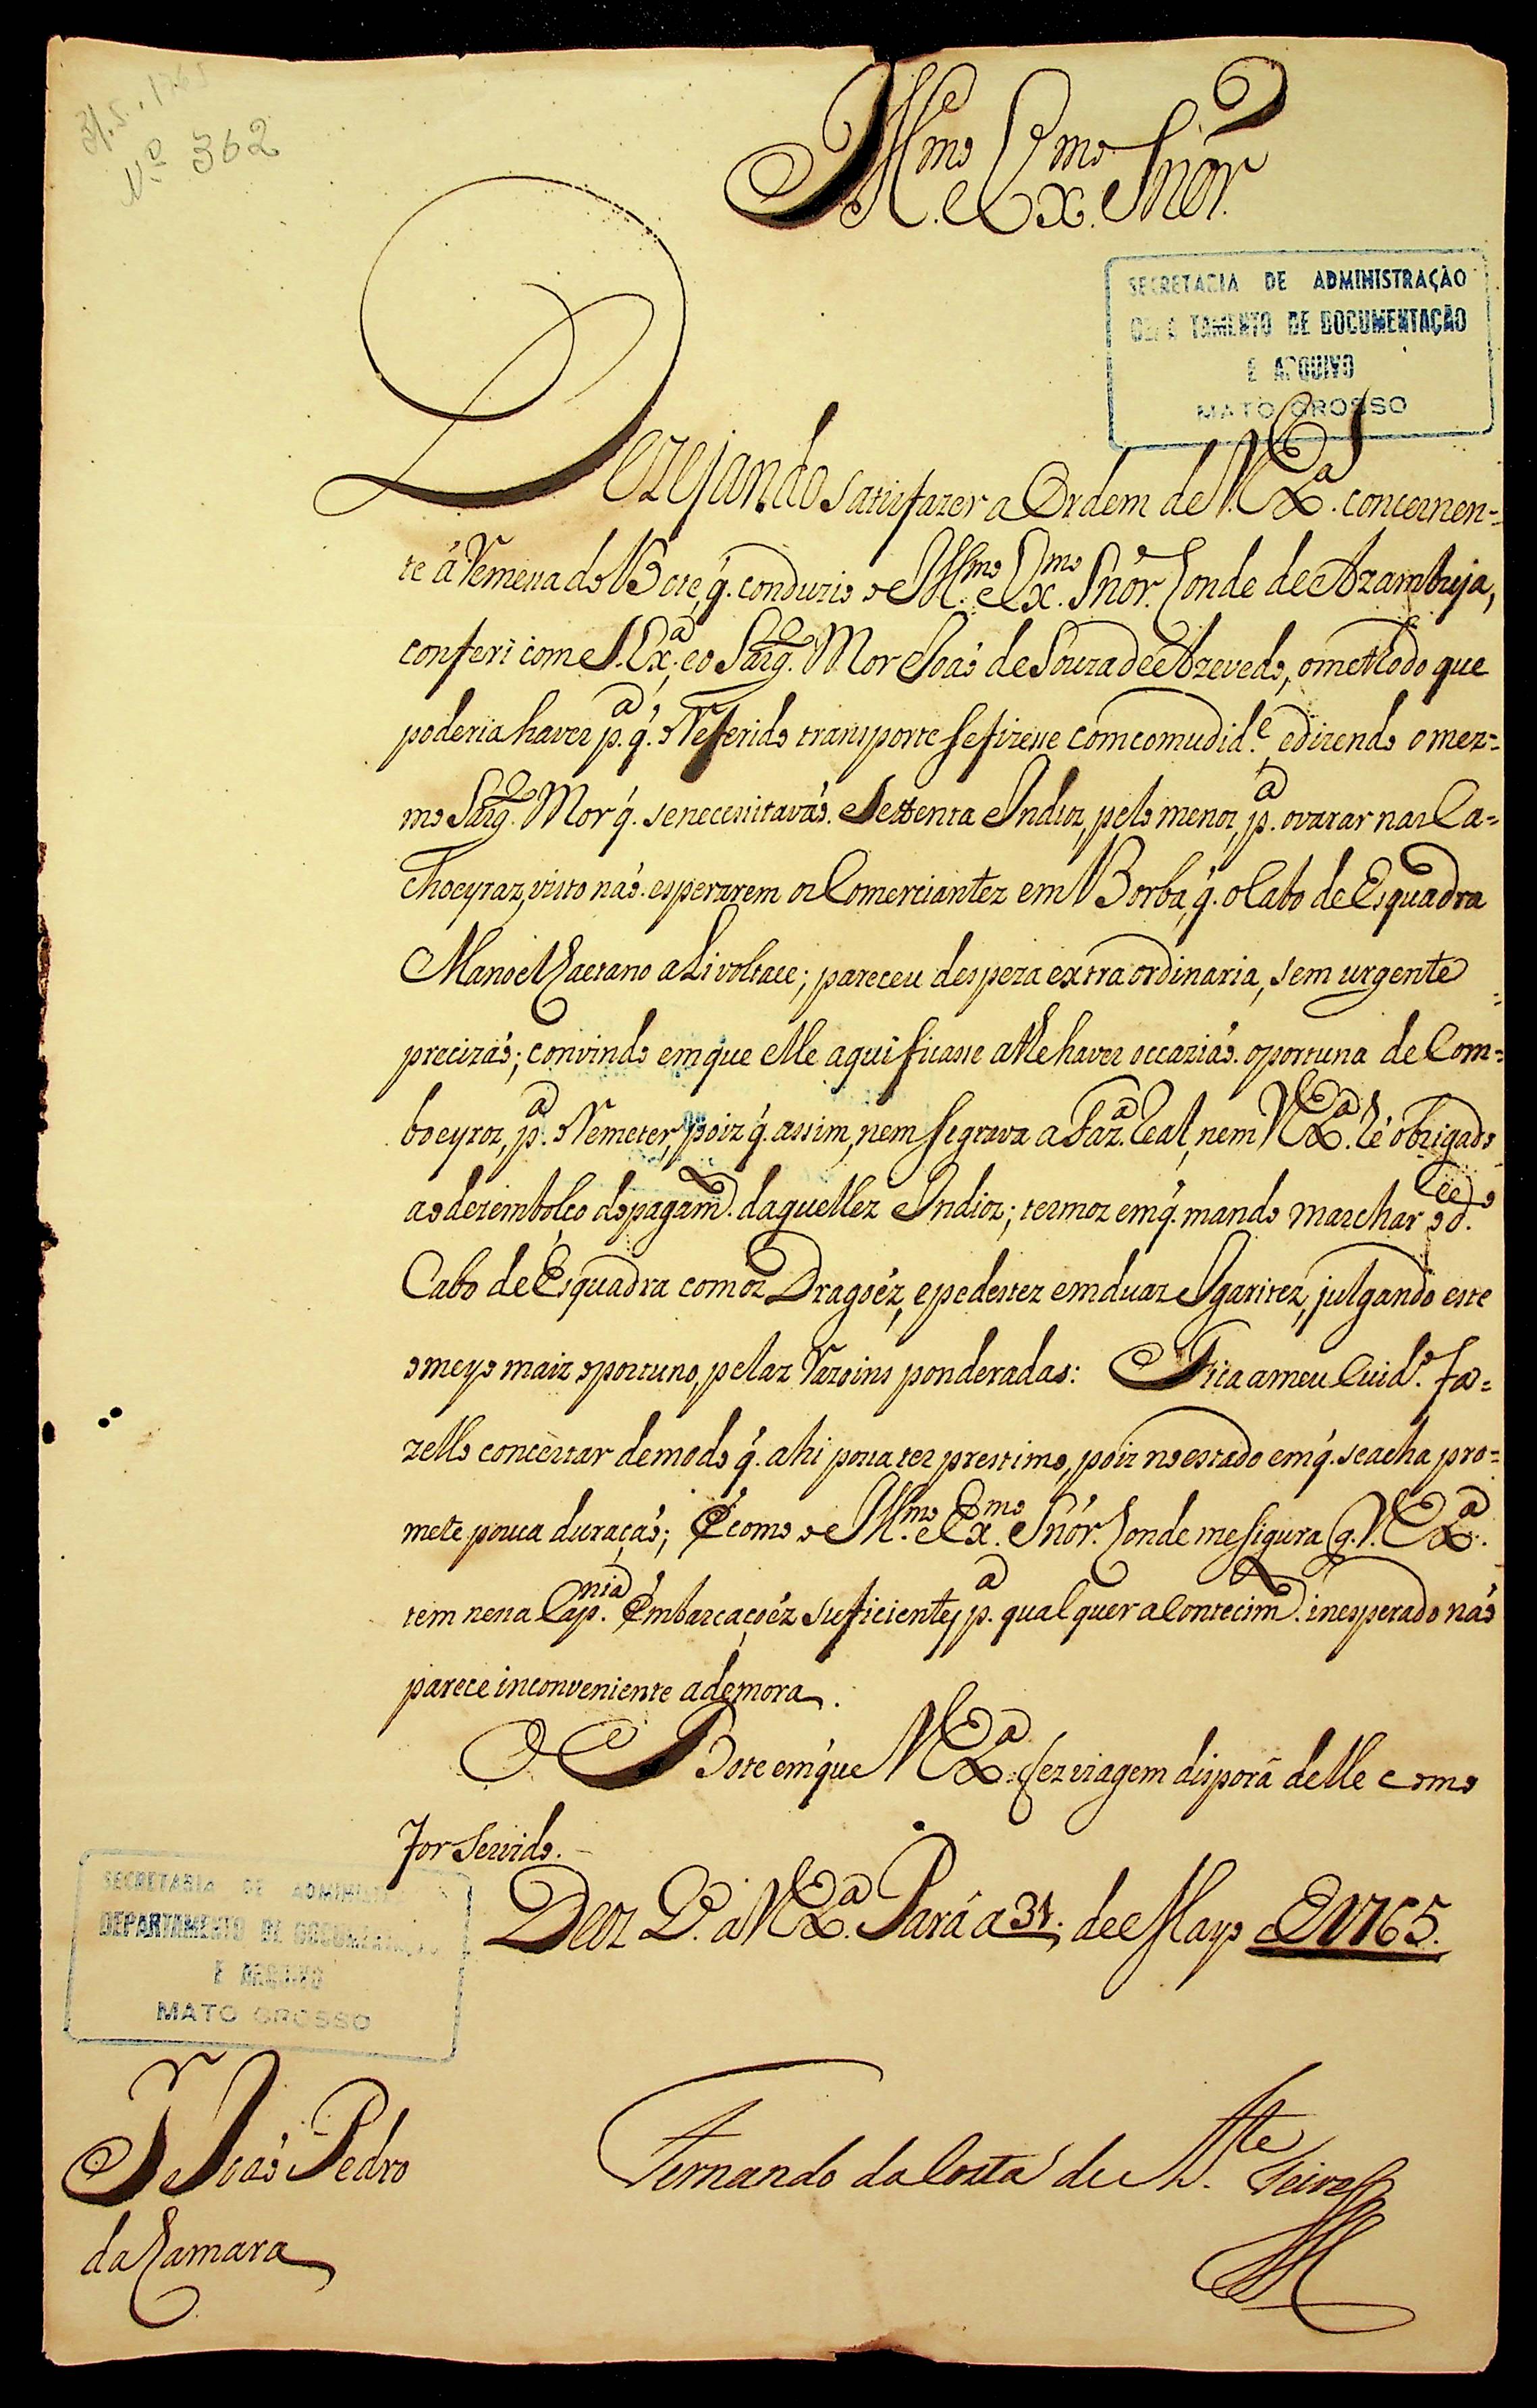 31.5.1765
Nº 362
Ill.mo e Ex.mo Snõr.
SECRETARIA DE ADMINISTRAÇÃO
DEPARTAMENTO DE DOCUMENTAÇÃO
E ARQUIVO
MATO GROSSO
Dezejando satisfazer a Ordem de V. Ex.a concernen=
te á Remessa do Bote, q̃. conduzio o Ill.mo e Ex.mo Snõr. Conde de Azambuja,
conferi com S. Ex.a, e o Sarg.to Mor Joaõ de Souza de Azevedo, o methodo que
poderia haver p.a q̃. o Referido transporte se fizesse com comudid.e, e dizendo o mez=
mo Sarg.to Mor q̃. se necessitavaõ. Settenta Indioz, pelo menoz, p.a o varar nas Ca=
choeyraz, visto naõ esperarem oz Comerciantez em Borba, q̃. o Cabo de Esquadra
Manoel Caetano ali voltace; pareceu despeza extraordinaria, sem urgente
precizaõ; convindo em que elle aqui ficasse athe haver occaziaõ oportuna de Com=
boeyroz, p.a o Remeter, poiz q̃. assim, nem se grava a Faz.a Real, nem V. Ex.a hé obrigado
ao dezembolço do pagam.to daquellez Indioz; termoz em q̃. mando marchar o d.o
Cabo de Esquadra com oz Dragoẽz, e pedestez em duaz Igaritez, julgando este
o meyo maiz oportuno, pelaz Razoins ponderadas: Fica a meu Cuid.o fa=
zello concertar de modo q̃. ahi possa ter prestimo, poiz no estado em q̃. se acha pro=
mete pouca duraçaõ; E como o Ill.mo e Ex.mo Snõr. Conde me sigura q̃. V. Ex.a
tem nessa Cap.nia Embarcaçoẽz suficientes p.a qualquer acontecim.to inesperado naõ
parece inconveniente a demora.
O Bote em que V. Ex.a fez viagem disporá delle como
for Servido.
Deoz G.e a V. Ex.a Pará a 31. de Mayo de 1765.
SECRETARIA DE ADMINISTRAÇÃO
DEPARTAMENTO DE DOCUMENTAÇÃO
E ARQUIVO
MATO GROSSO
S.r Joaõ Pedro
da Camara
Fernando da Costa de At.te Teive